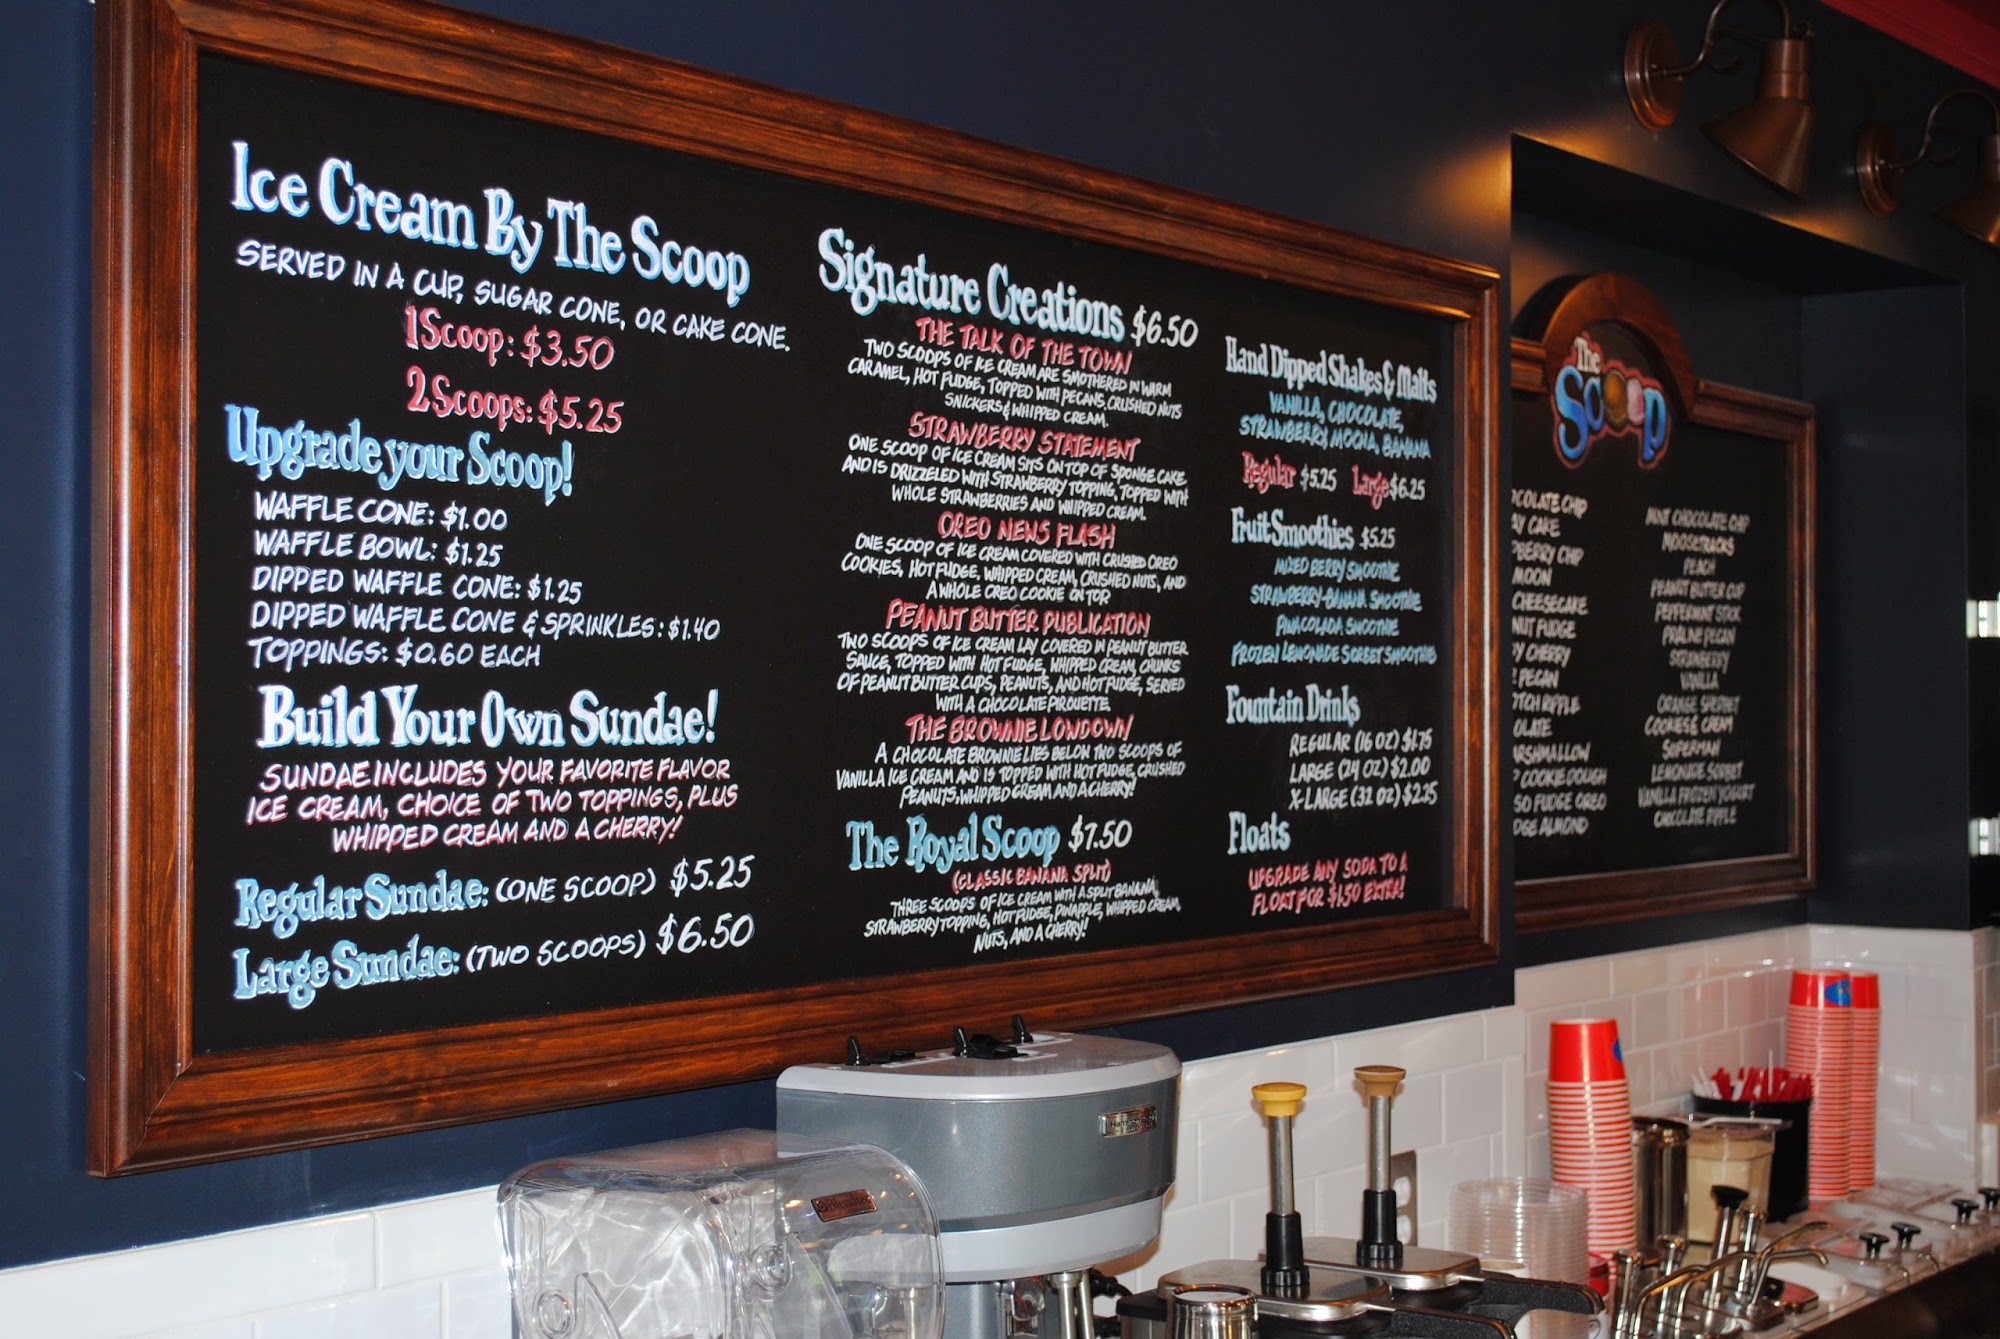 Ice Cream By The Scoop
SERVED IN A CUP, SUGAR CONE, OR CAKE CONE.
1 Scoop: $3.50
2 Scoops: $5.25
Upgrade your Scoop!
WAFFLE CONE: $1.00
WAFFLE BOWL: $1.25
DIPPED WAFFLE CONE: $1.25
DIPPED WAFFLE CONE & SPRINKLES: $1.40
TOPPINGS: $0.60 EACH
Build Your Own Sundae!
SUNDAE INCLUDES YOUR FAVORITE FLAVOR
ICE CREAM, CHOICE OF TWO TOPPINGS, PLUS
WHIPPED CREAM AND A CHERRY!
Regular Sundae: (ONE SCOOP) $5.25
Large Sundae: (TWO SCOOPS) $6.50
Signature Creations $6.50
THE TALK OF THE TOWN
TWO SCOOPS OF ICE CREAM ARE SMOTHERED IN WARM
CARAMEL, HOT FUDGE, TOPPED WITH PECANS, CRUSHED NUTS
SNICKERS & WHIPPED CREAM.
STRAWBERRY STATEMENT
ONE SCOOP OF ICE CREAM SITS ON TOP OF SPONGE CAKE
AND IS DRIZZELED WITH STRAWBERRY TOPPING, TOPPED WITH
WHOLE STRAWBERRIES AND WHIPPED CREAM.
OREO NEWS FLASH
ONE SCOOP OF ICE CREAM COVERED WITH CRUSHED OREO
COOKIES, HOT FUDGE, WHIPPED CREAM, CRUSHED NUTS, AND
A WHOLE OREO COOKIE ON TOP
PEANUT BUTTER PUBLICATION
TWO SCOOPS OF ICE CREAM LAY COVERED IN PEANUT BUTTER
SAUCE, TOPPED WITH HOT FUDGE, WHIPPED CREAM, CHUNKS
OF PEANUT BUTTER CUPS, PEANUTS, AND HOT FUDGE, SERVED
WITH A CHOCOLATE PIROUETTE
THE BROWNIE LOWDOWN
A CHOCOLATE BROWNIE LIES BELOW TWO SCOOPS OF
VANILLA ICE CREAM AND IS TOPPED WITH HOT FUDGE, CRUSHED
PEANUTS, WHIPPED CREAM AND A CHERRY!
The Royal Scoop $7.50
(CLASSIC BANANA SPLIT)
THREE SCOOPS OF ICE CREAM WITH A SPLIT BANANA,
STRAWBERRY TOPPING, HOT FUDGE, PINAPPLE, WHIPPED CREAM,
NUTS, AND A CHERRY!
Hand Dipped Shakes & Malts
VANILLA, CHOCOLATE,
STRAWBERRY, MOCHA, BANANA
Regular $5.25 Large $6.25
Fruit Smoothies $5.25
MIXED BERRY SMOOTHIE
STRAWBERRY-BANANA SMOOTHIE
PINACOLADA SMOOTHIE
FROZEN LEMONADE SORBET SMOOTHIE
Fountain Drinks
REGULAR (16 OZ) $1.75
LARGE (24 OZ) $2.00
X-LARGE (32 OZ) $2.25
Floats
UPGRADE ANY SODA TO A
FLOAT FOR $1.50 EXTRA!
The
Scoop
OCOLATE CHIP
AY CAKE
PBERRY CHIP
MOON
CHEESECAKE
NUT FUDGE
Y CHERRY
PECAN
OTCH RIPPLE
OLATE
ARSHMALLOW
COOKIE DOUGH
SO FUDGE OREO
DGE ALMOND
MINT CHOCOLATE CHIP
MOOSETRACKS
PEACH
PEANUT BUTTER CUP
PEPPERMINT STICK
PRALINE PECAN
STRAWBERRY
VANILLA
ORANGE SHERBET
COOKIES & CREAM
SUPERMAN
LEMONADE SORBET
VANILLA FROZEN YOGURT
CHOCOLATE RIPPLE
Blendtec